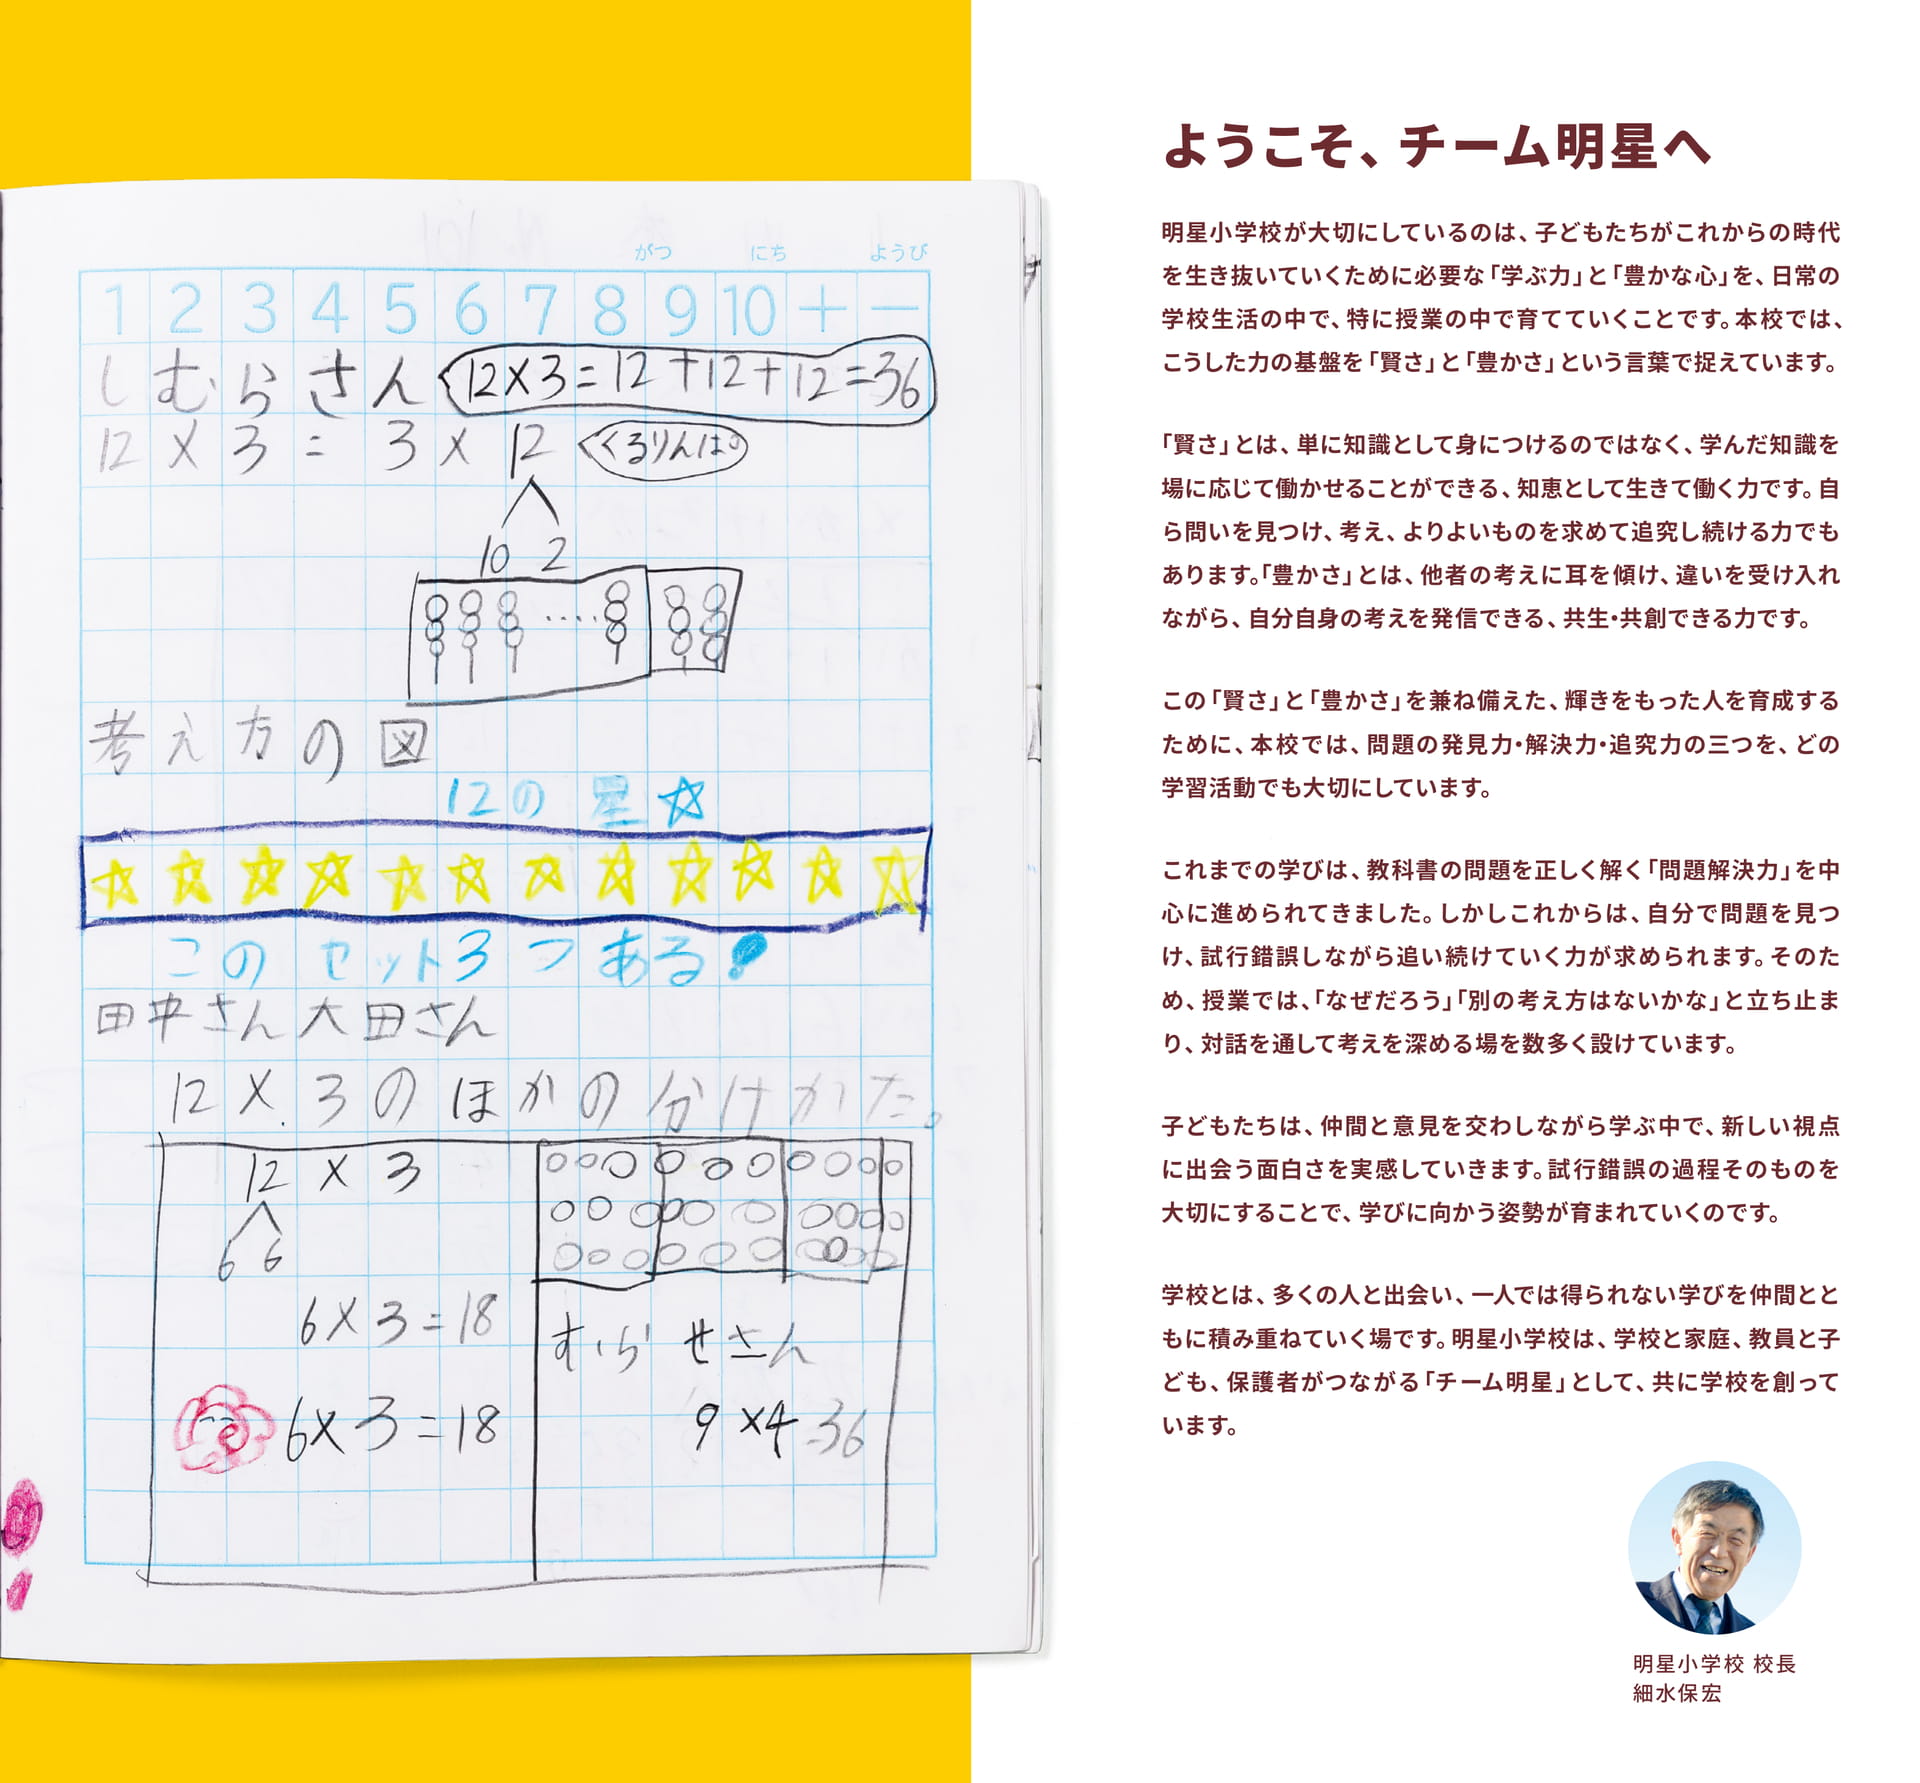 がつ にち ようび
1 2 3 4 5 6 7 8 9 10 + −
しむらさん 12×3=12+12+12=36
12×3=3×12 くるりんぱ
10 2
考え方の図
12の星☆
このセット3つある!
田中さん大田さん
12×3のほかの分けかた。
12×3
6 6
6×3=18
むらせさん
6×3=18
9×4=36
ようこそ、チーム明星へ
明星小学校が大切にしているのは、子どもたちがこれからの時代
を生き抜いていくために必要な「学ぶ力」と「豊かな心」を、日常の
学校生活の中で、特に授業の中で育てていくことです。本校では、
こうした力の基盤を「賢さ」と「豊かさ」という言葉で捉えています。
「賢さ」とは、単に知識として身につけるのではなく、学んだ知識を
場に応じて働かせることができる、知恵として生きて働く力です。自
ら問いを見つけ、考え、よりよいものを求めて追究し続ける力でも
あります。「豊かさ」とは、他者の考えに耳を傾け、違いを受け入れ
ながら、自分自身の考えを発信できる、共生・共創できる力です。
この「賢さ」と「豊かさ」を兼ね備えた、輝きをもった人を育成する
ために、本校では、問題の発見力・解決力・追究力の三つを、どの
学習活動でも大切にしています。
これまでの学びは、教科書の問題を正しく解く「問題解決力」を中
心に進められてきました。しかしこれからは、自分で問題を見つ
け、試行錯誤しながら追い続けていく力が求められます。そのた
め、授業では、「なぜだろう」「別の考え方はないかな」と立ち止ま
り、対話を通して考えを深める場を数多く設けています。
子どもたちは、仲間と意見を交わしながら学ぶ中で、新しい視点
に出会う面白さを実感していきます。試行錯誤の過程そのものを
大切にすることで、学びに向かう姿勢が育まれていくのです。
学校とは、多くの人と出会い、一人では得られない学びを仲間とと
もに積み重ねていく場です。明星小学校は、学校と家庭、教員と子
ども、保護者がつながる「チーム明星」として、共に学校を創って
います。
明星小学校 校長
細水保宏